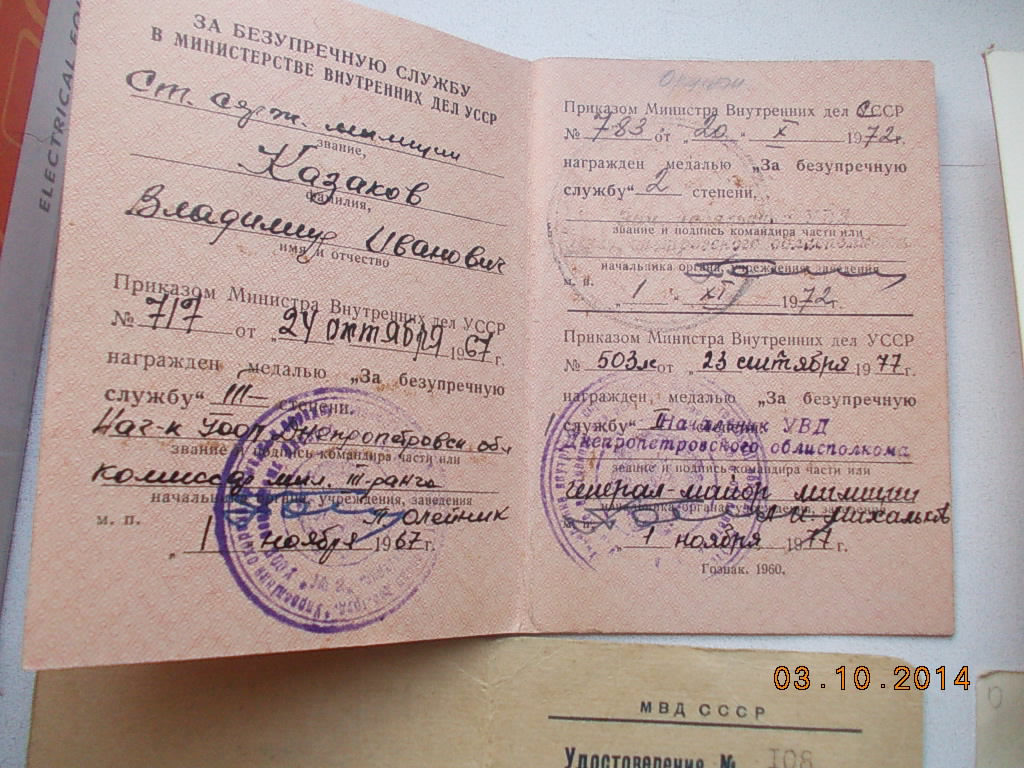 ELECTRICAL
ЗА БЕЗУПРЕЧНУЮ СЛУЖБУ
В МИНИСТЕРСТВЕ ВНУТРЕННИХ ДЕЛ УССР
Ст. серж. милиции
звание,
Казаков
фамилия,
Владимир Иванович
имя и отчество
Приказом Министра Внутренних дел УССР
№ 717 от „24 октября 1967г.
награжден медалью „За безупречную
службу" III степени.
Нач-к УООП Днепропетровск. обл
звание и подпись командира части или
комиссар мил. III-ранга
начальника органа, учреждения, заведения
м. п. П Олейник
„1 ноября 1967г.
Приказом Министра Внутренних дел СССР
№ 783 от „20 " XI 1972г.
награжден медалью „За безупречную
службу" 2 степени.
звание и подпись командира части или
начальника органа, учреждения, заведения
м. п.
„1 " XI 1972г.
Приказом Министра Внутренних дел УССР
№ 503лс от „23 сентября 1977г.
награжден медалью „За безупречную
службу" II степени
Начальник УВД
Днепропетровского облисполкома
звание и подпись командира части или
генерал-майор милиции
начальника органа, учреждения, заведения
„1 ноября 1977г.
Гознак. 1960.
МВД СССР
Удостоверение № 108
03.10.2014